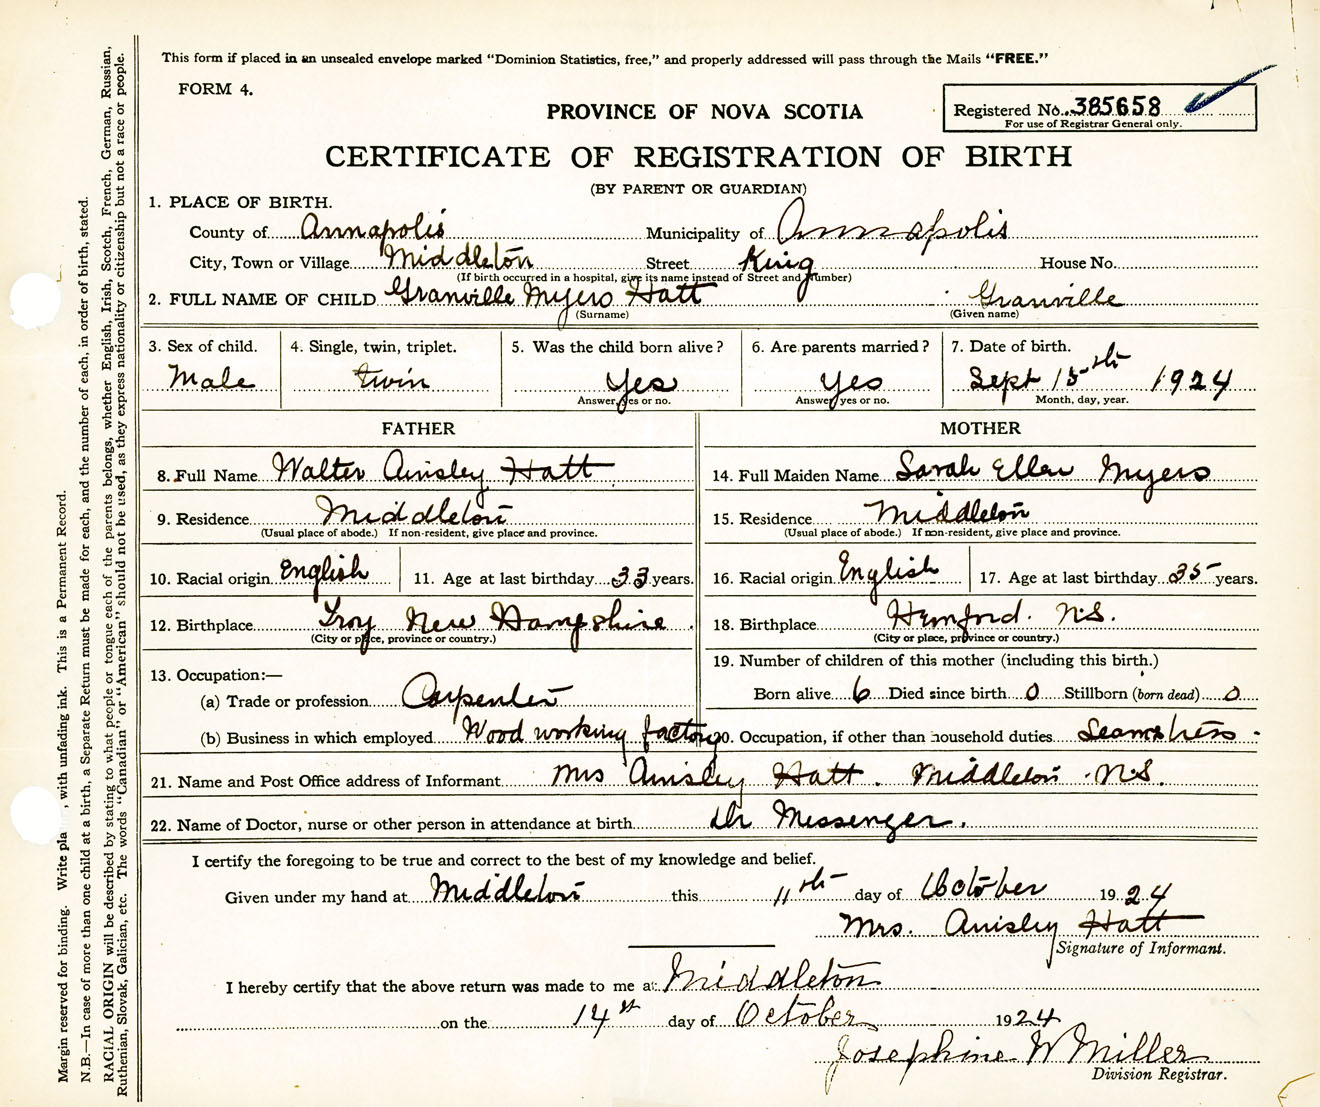 This form if placed in an unsealed envelope marked "Dominion Statistics, free," and properly addressed will pass through the Mails "FREE."
FORM 4.
Registered No. 385658
For use of Registrar General only.
PROVINCE OF NOVA SCOTIA
CERTIFICATE OF REGISTRATION OF BIRTH
(BY PARENT OR GUARDIAN)
1. PLACE OF BIRTH.
County of Annapolis Municipality of Annapolis
City, Town or Village Middleton Street King House No.
(If birth occurred in a hospital, give its name instead of Street and Number)
2. FULL NAME OF CHILD Granville Myers Hatt Granville
(Surname) (Given name)
3. Sex of child. 4. Single, twin, triplet. 5. Was the child born alive? 6. Are parents married? 7. Date of birth.
Male twin Yes Yes Sept 15th 1924
Answer, yes or no. Answer yes or no. Month, day, year.
FATHER MOTHER
8. Full Name Walter Ainsley Hatt 14. Full Maiden Name Sarah Ellen Myers
9. Residence Middleton 15. Residence Middleton
(Usual place of abode.) If non-resident, give place and province. (Usual place of abode.) If non-resident, give place and province.
10. Racial origin English 11. Age at last birthday 33 years. 16. Racial origin English 17. Age at last birthday 35 years.
12. Birthplace Troy New Hampshire 18. Birthplace Hemford. N.S.
(City or place, province or country.) (City or place, province or country.)
13. Occupation:— 19. Number of children of this mother (including this birth.)
(a) Trade or profession Carpenter Born alive 6 Died since birth 0 Stillborn (born dead) 0
(b) Business in which employed Wood working factory 20. Occupation, if other than household duties Seamstress
21. Name and Post Office address of Informant Mrs Ainsley Hatt. Middleton N.S.
22. Name of Doctor, nurse or other person in attendance at birth Dr Messenger.
I certify the foregoing to be true and correct to the best of my knowledge and belief.
Given under my hand at Middleton this 11th day of October 1924
Mrs. Ainsley Hatt
Signature of Informant.
I hereby certify that the above return was made to me at Middleton
on the 14st day of October 1924
Josephine W Miller
Division Registrar.
Margin reserved for binding. Write pla , with unfading ink. This is a Permanent Record.
N.B.—In case of more than one child at a birth, a Separate Return must be made for each, and the number of each, in order of birth, stated.
RACIAL ORIGIN will be described by stating to what people or tongue each of the parents belongs, whether English, Irish, Scotch, French, German, Russian,
Ruthenian, Slovak, Galician, etc. The words "Canadian" or "American" should not be used, as they express nationality or citizenship but not a race or people.